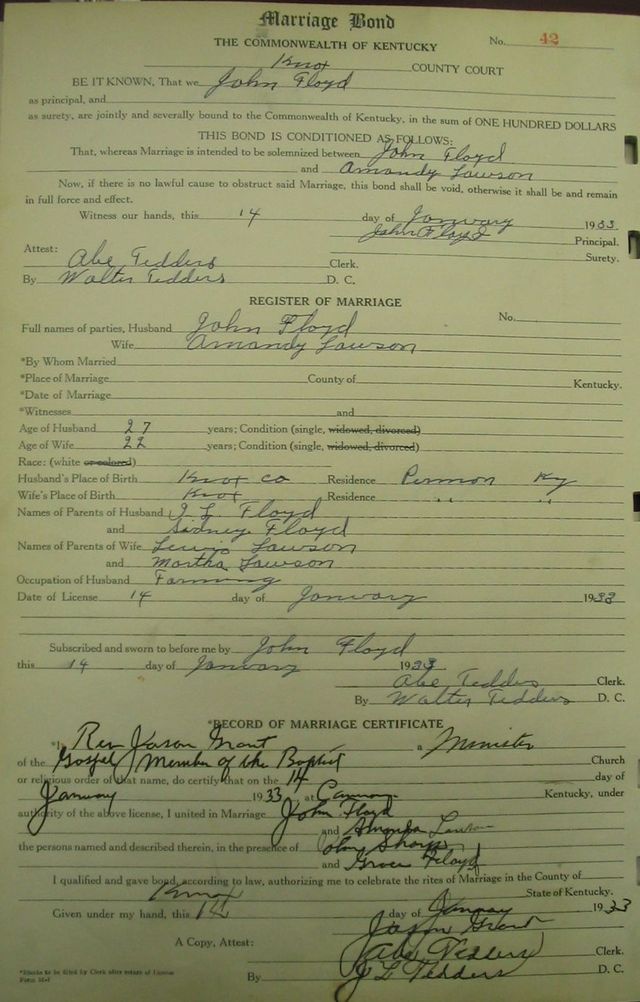 Marriage Bond
THE COMMONWEALTH OF KENTUCKY No. 42
Knox COUNTY COURT
BE IT KNOWN, That we John Floyd
as principal, and
as surety, are jointly and severally bound to the Commonwealth of Kentucky, in the sum of ONE HUNDRED DOLLARS
THIS BOND IS CONDITIONED AS FOLLOWS:
That, whereas Marriage is intended to be solemnized between John Floyd
and Amandy Lawson
Now, if there is no lawful cause to obstruct said Marriage, this bond shall be void, otherwise it shall be and remain
in full force and effect.
Witness our hands, this 14 day of January 1933
John Floyd Principal.
Attest: Surety.
Abe Tedders Clerk.
By Walter Tedders D. C.
REGISTER OF MARRIAGE
Full names of parties, Husband John Floyd No.
Wife Amandy Lawson
*By Whom Married
*Place of Marriage County of Kentucky.
*Date of Marriage
*Witnesses and
Age of Husband 27 years; Condition (single, widowed, divorced)
Age of Wife 22 years; Condition (single, widowed, divorced)
Race: (white or colored)
Husband's Place of Birth Knox co Residence Permon Ky
Wife's Place of Birth Knox Residence " "
Names of Parents of Husband J L Floyd
and Sidney Floyd
Names of Parents of Wife Lewis Lawson
and Martha Lawson
Occupation of Husband Farming
Date of License 14 day of January 1933
Subscribed and sworn to before me by John Floyd
this 14 day of January 1933
Abe Tedders Clerk.
By Walter Tedders D. C.
*RECORD OF MARRIAGE CERTIFICATE
*I Rev Jason Grant a Minister
of the Gospel Member of the Baptist Church
or religious order of that name, do certify that on the 14 day of
January 1933 at Kentucky, under
authority of the above license, I united in Marriage John Floyd
and Amanda
the persons named and described therein, in the presence of Sharp
and Grace Floyd
I qualified and gave bond, according to law, authorizing me to celebrate the rites of Marriage in the County of
Knox State of Kentucky.
Given under my hand, this 14 day of January 1933
Jason Grant
A Copy, Attest: Abe Tedders Clerk.
By J L Tedders D. C.
*Blanks to be filled by Clerk after return of License